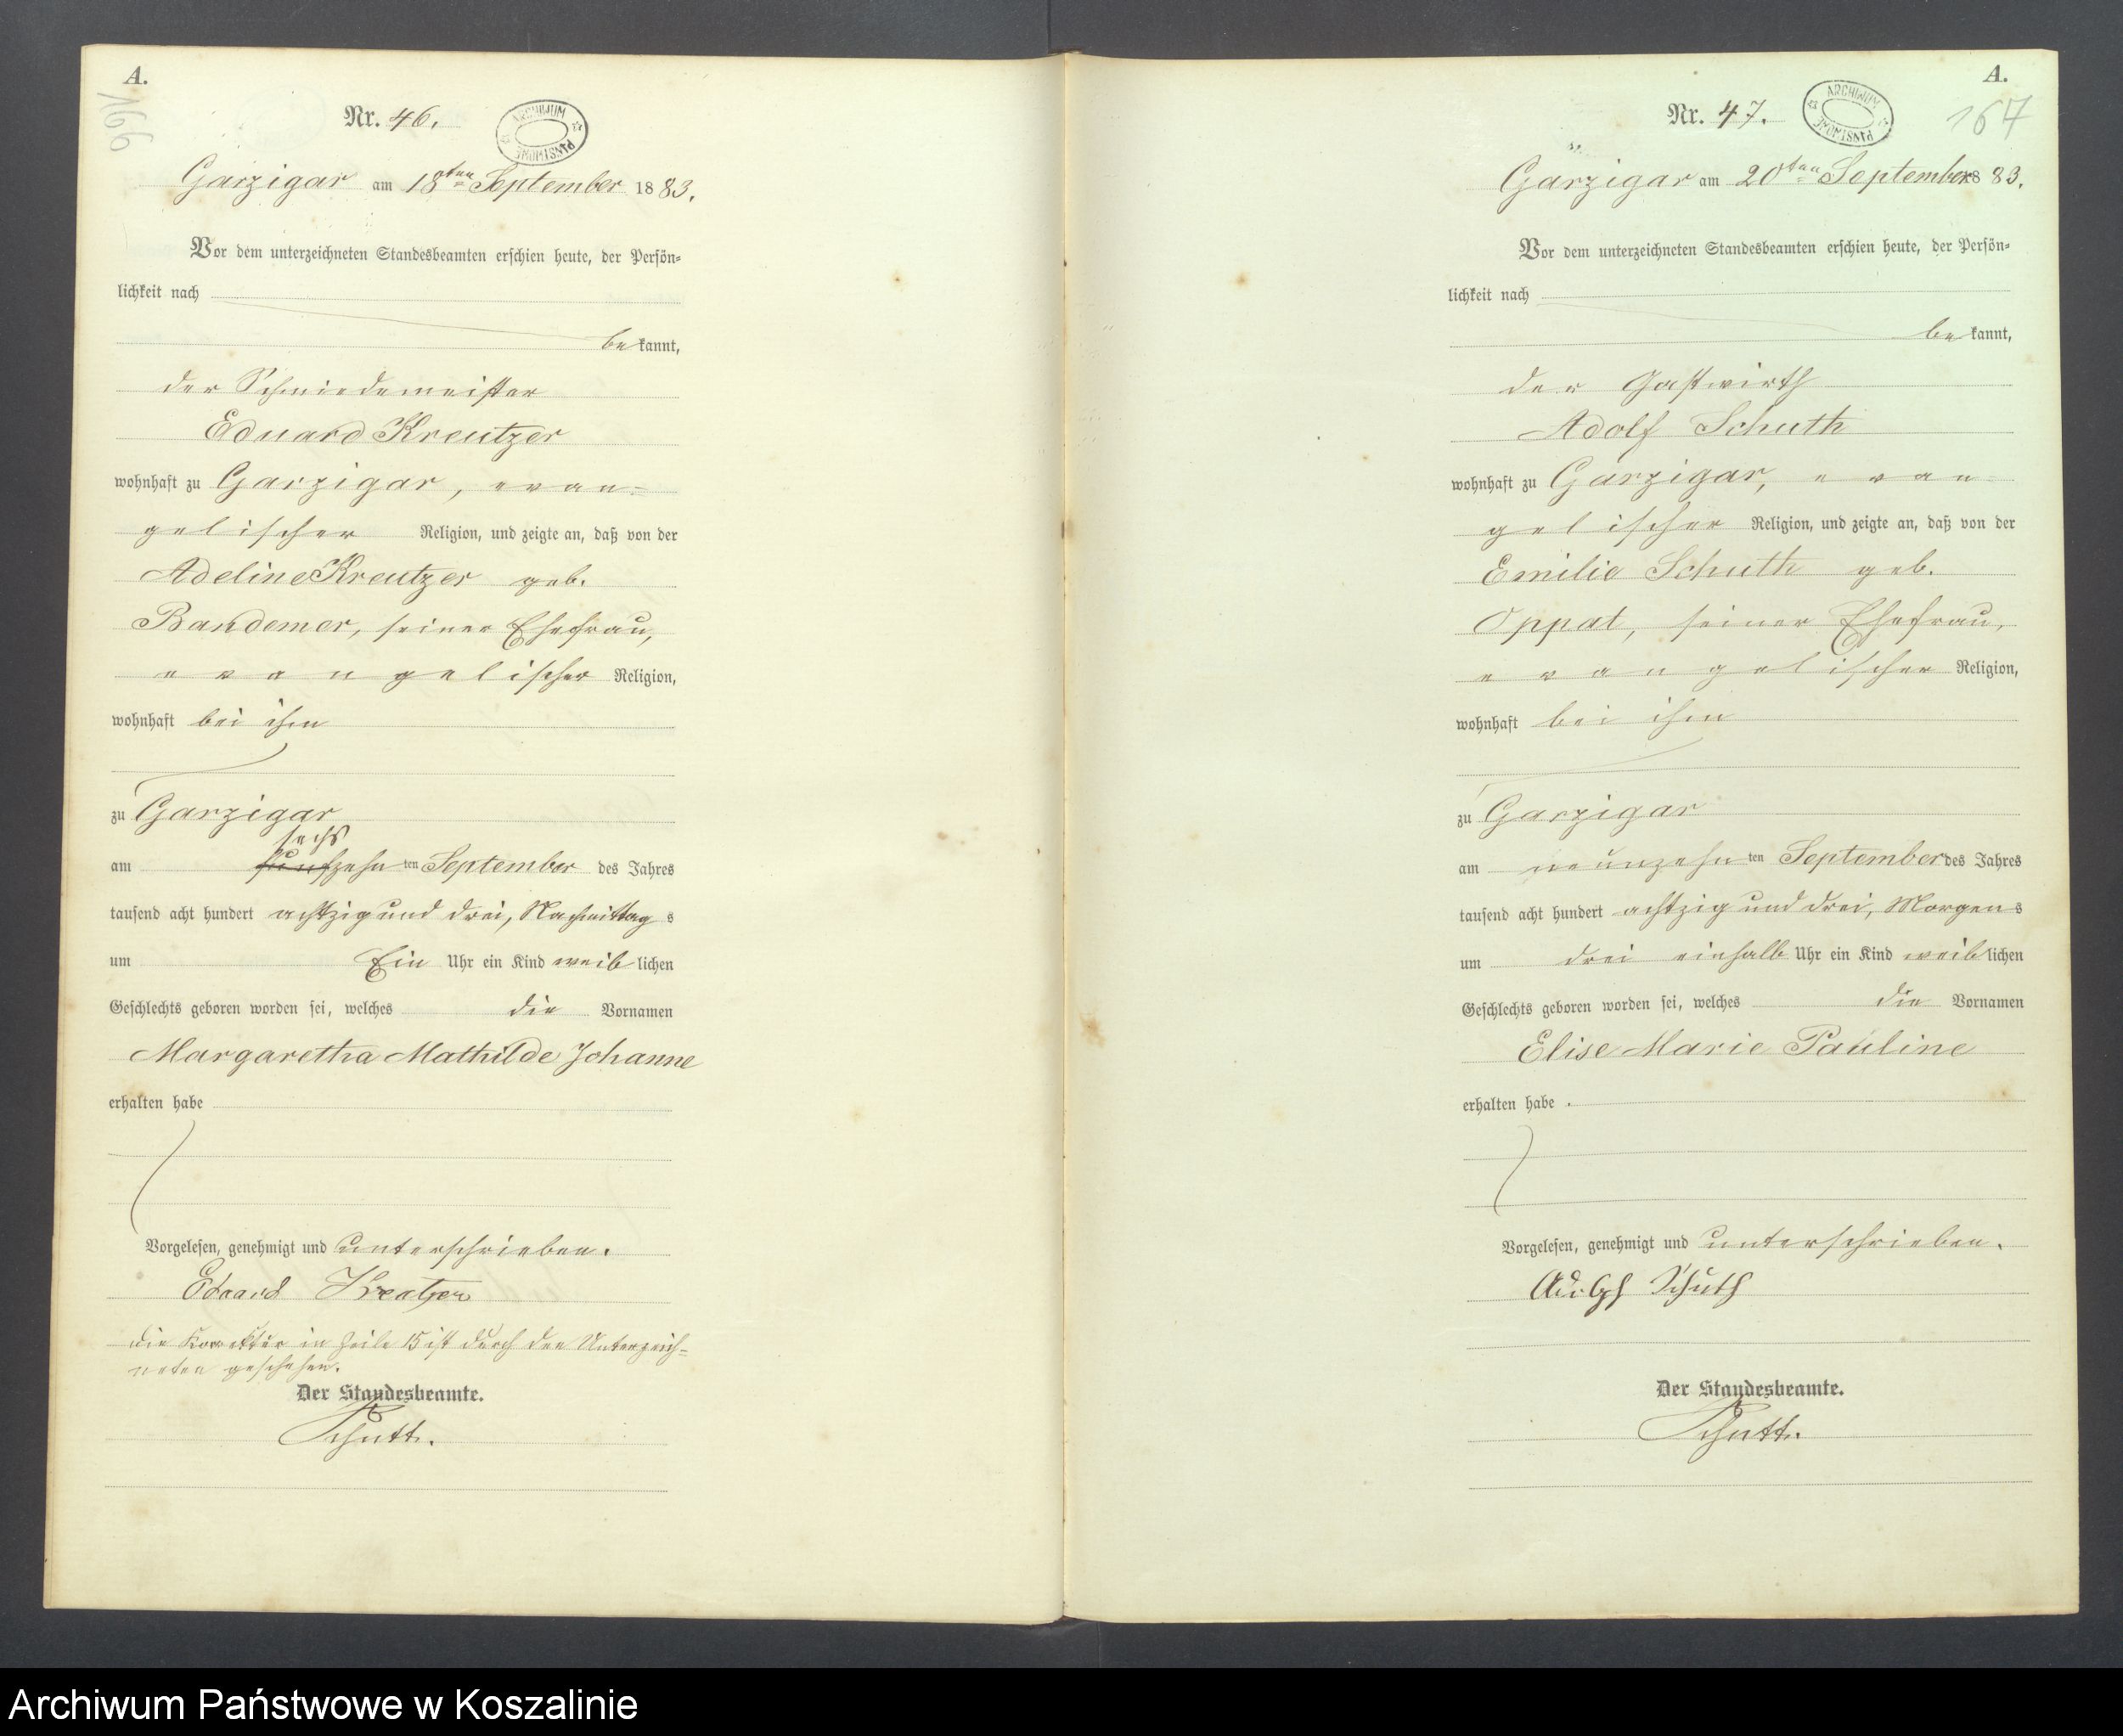 A.
166
Nr. 46.
ARCHIWUM PAŃSTWOWE
Garzigar am 18ten September 1883.
Vor dem unterzeichneten Standesbeamten erschien heute, der Persön=
lichkeit nach
bekannt,
der Schmiedemeister
Eduard Kreutzer
wohnhaft zu Garzigar, evan-
gelischer Religion, und zeigte an, daß von der
Adeline Kreutzer geb.
Bandemer, seiner Ehefrau,
evangelischer Religion,
wohnhaft bei ihm
zu Garzigar
sechs
am fünfzehnten September des Jahres
tausend acht hundert achtzig und drei, Nachmittags
um Ein Uhr ein Kind weiblichen
Geschlechts geboren worden sei, welches die Vornamen
Margaretha Mathilde Johanne
erhalten habe
Vorgelesen, genehmigt und unterschrieben.
Eduard Kreutzer
Die Korrektur in Zeile 15 ist durch den Unterzeich=
neten geschehen.
Der Standesbeamte.
Schutt.
A.
167
Nr. 47.
ARCHIWUM PAŃSTWOWE
Garzigar am 20ten September 1883.
Vor dem unterzeichneten Standesbeamten erschien heute, der Persön=
lichkeit nach
bekannt,
der Gastwirth
Adolf Schuth
wohnhaft zu Garzigar, evan-
gelischer Religion, und zeigte an, daß von der
Emilie Schuth geb.
Oppat, seiner Ehefrau,
evangelischer Religion,
wohnhaft bei ihm
zu Garzigar
am neunzehnten September des Jahres
tausend acht hundert achtzig und drei, Morgens
um drei einhalb Uhr ein Kind weiblichen
Geschlechts geboren worden sei, welches die Vornamen
Elise Marie Pauline
erhalten habe.
Vorgelesen, genehmigt und unterschrieben.
Adolph Schuth
Der Standesbeamte.
Schutt.
Archiwum Państwowe w Koszalinie